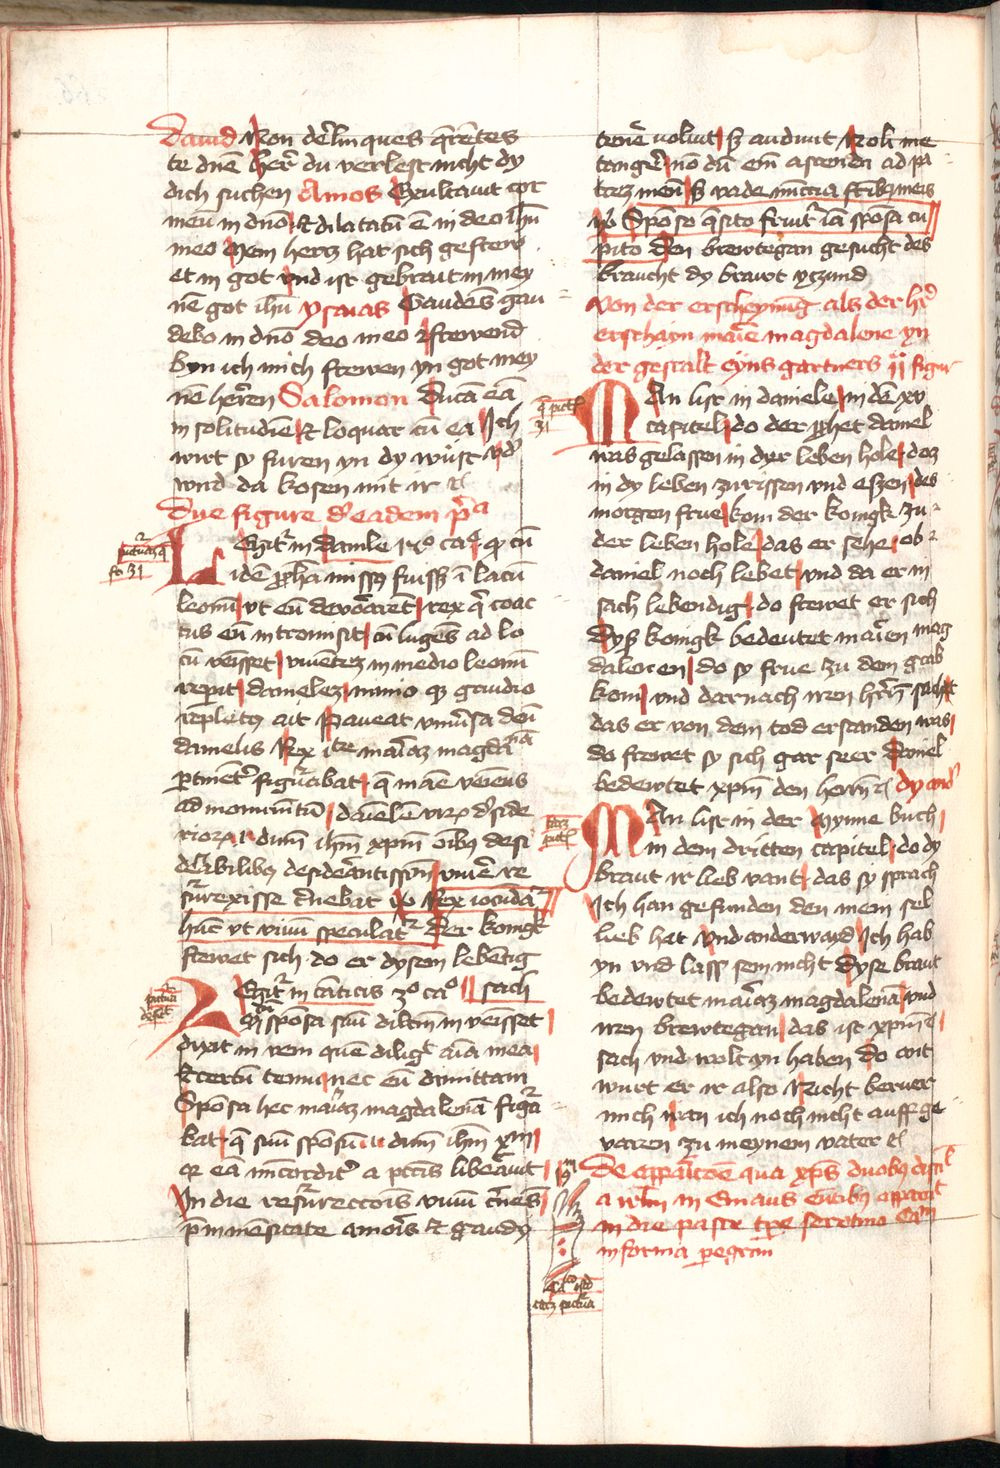 Dauid Non derlinques qrentes
te dne herr du verlest nicht dy
dich suchen Amos Exultauit cor
meu in dno et dilatatu e in deo ihu
meo Mein hertz hat sich gefrew
et in got vnd ist gebraut in mey
ne got ihu ysaias Gaudes gau
debo in dno deo meo frewend
byn ich mich frewen yn got mey
ne herren Salomon Ducā eā
in solitudine et loquar cū ea Ich
wirt sy furen yn dy wüst
vnd da kosen mit ir
Due figure d'eadem pra
Legitr in daniele ca q cū
idē ppha missus fuisset ī lacū
leonū vt eū devorarent rex q coac
tus eū intromisit cū lugens ad lo
cū venisset viuentez in medio leonū
reperit danielez nimio qz gaudio
repletus ait Paveat vniusa
danielis Rex iste mariaz magdanā
ptinet figurabat q mane veiens
ad monumentū danielē virū deside
rioru dnm ihm xpm oibus desi
derabilibus desiderantissim viue re
surexisse cernebat vo Rex iocundatr
hunc vt viuu speculatr Der konigk
frewet sich do er dysem lebentig
Legitr in canticis 3o cao sach
Qm sponsa suu dilcm inveisset
dixit inveni quem diligit aia mea
et certu tenui nec eu dimittam
Sponsa hec mariaz magdalenā figura
bat q suu sponsum dnm ihm xpm
qz ea misericorditr a pctis liberauit
In die resurrectois viuu cernens
p inmensitate amoris et gaudy
tenere voluit sz audiuit Noli me
tangere no du em ascendi ad pa
trez meu sz vade nuncia fribus meis
vo Sponso qsito fruitr ia sponsa cu
pito Den brewtegan gesucht des
braucht dy brawt yczund
Von der erscheynung als der hr
erschayn marie magdalene yn
der gestalt eyns gartners ij figur
Man list in daniele in dē xv
capitel do der pphet daniel
was gelassen in dyr leben hole daz
in dy leben zurissen vnd essen des
morgen frue kom der konigk zu
der leben hole das er sehe ob
daniel noch lebet vnd da er in
sach lebendig do frewet er sich
Dyss konigk bedeutet marien mag
dalenen do sy frue zu dem grab
kom vnd darnach iren hrn sichtt
das er von dem tod erstanden was
do frewet sy sich gar seer Daniel
bedewtet xpm den hern dy and
Man list in der Mynne buch
in dem dritten capitel do dy
braut ir lieb vant das sy sprach
Ich han gefunden den mein sel
lieb het Vnd anderwayd Ich hab
yn vnd lass sein nicht Dyse braut
bedewtet mariaz magdalenā vnd
iren brewtegan das ist xpm
sach vnd wolt yn haben Do ant
wurt er ir also Nicht beruer
mich wan ich noch nicht auff ge
varen zu meynem vater
De apparicoe qua xps duobus discil
a irlm in Emaus Euntibus apparuit
in die pasce tpe serotino
in forma pegrini